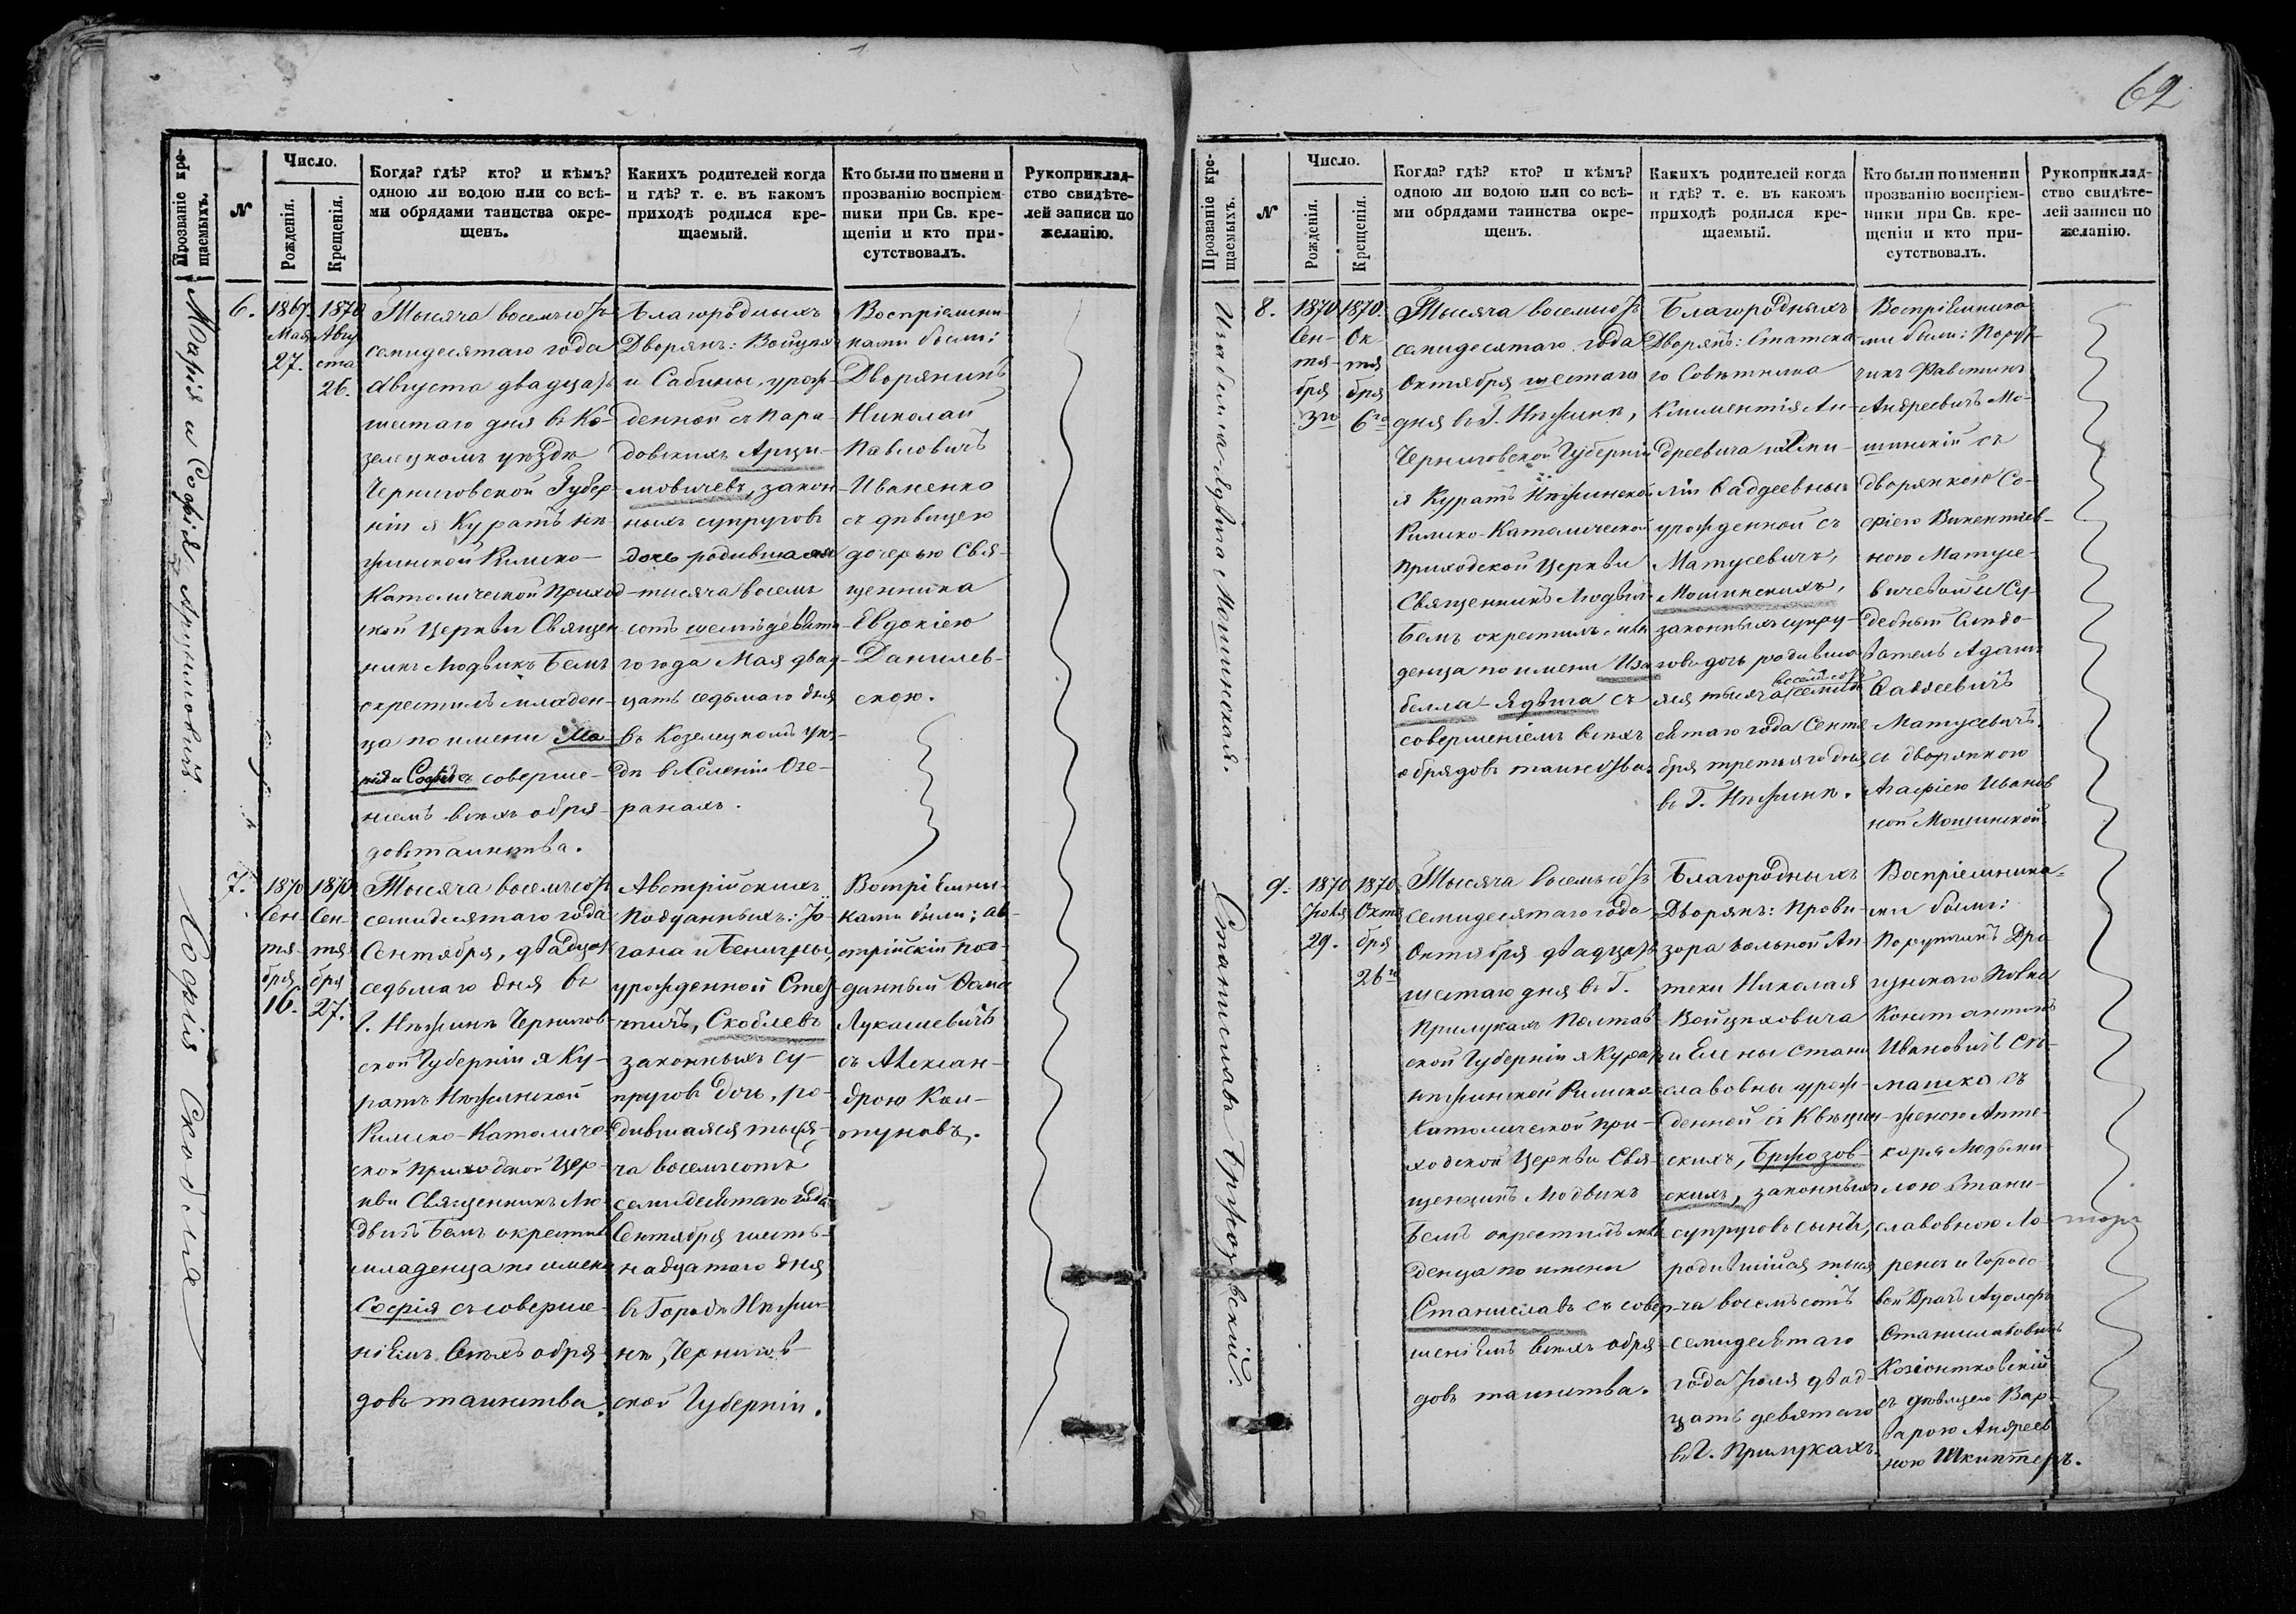 62
Прозваніе кре-
щаемыхъ.
№
Число.
Рожденія.
Крещенія.
Когда? гдѣ? кто? и кѣмъ?
одною ли водою или со всѣ-
ми обрядами таинства окре-
щенъ.
Какихъ родителей когда
и гдѣ? т. е. въ какомъ
приходѣ родился кре-
щаемый.
Кто были по имени и
прозванію воспріем-
ники при Св. кре-
щеніи и кто при-
сутствовалъ.
Рукоприклад-
ство свидѣте-
лей записи по
желанію.
Марія и Софія Арцимовичъ
6.
1869
Мая
27.
1870
Авгу
ста
26.
Тысяча восемьсотъ
семидесятаго года
Августа двадцать
шестаго дня въ Ко-
зелецкомъ уѣздѣ
Черниговской Губер-
ніи я Куратъ Нѣ-
жинской Римско-
Католической Приход
ской Церкви Священ
никъ Людвикъ Бемъ
окрестилъ младен-
ца по имени Ма-
рія и Софія съ соверше-
ніемъ всѣхъ обря-
довъ таинства.
Благородныхъ
Дворянъ: Войцѣха
и Сабины, урож-
денной съ Пора-
довскихъ Арци-
мовичевъ, закон-
ныхъ супруговъ
дочь родившаяся
тысяча восемь
сотъ шестьдевята
го года Мая двад-
цать седьмаго дня
въ Козелецкомъ уѣз-
дѣ въ Селеніи Озе-
ранахъ.
Воспріемни-
ками были:
Дворянинъ
Николай
Павловичъ
Иваненко
съ дѣвицею
дочерью Свя-
щенника
Евдокіею
Данилев-
скою.
Софія Скобля
7.
1870
Сен-
тя-
бря
16.
1870
Сен-
тя-
бря
27.
Тысяча восемьсотъ
семидесятаго года
Сентября, двадцать
седьмаго дня въ
Г. Нѣжинѣ Чернигов-
ской Губерніи я Ку-
ратъ Нѣжинской
Римско-Католиче-
ской приходской Цер-
кви Священникъ Лю-
двикъ Бемъ окрестилъ
младенца по имени
Софія съ соверше-
ніемъ всѣхъ обря-
довъ таинства.
Австрійскихъ
Подданныхъ: Іо-
гана и Бенигны,
урожденной
Скоблевъ
законныхъ су-
пруговъ дочь, ро-
дившаяся тыся-
ча восемьсотъ
семидесятаго года
Сентября шест-
надцатаго дня
въ Городѣ Нѣжи-
нѣ, Чернигов-
ской Губерніи.
Воспріемни-
ками были: Ав-
стрійскій под-
данный Фома
Лукашевичъ
съ Алексан-
дрою Кол-
пуновъ.
Прозваніе кре-
щаемыхъ.
№
Число.
Рожденія.
Крещенія.
Когда? гдѣ? кто? и кѣмъ?
одною ли водою или со всѣ-
ми обрядами таинства окре-
щенъ.
Какихъ родителей когда
и гдѣ? т. е. въ какомъ
приходѣ родился кре-
щаемый.
Кто были по имени и
прозванію воспріем-
ники при Св. кре-
щеніи и кто при-
сутствовалъ.
Рукоприклад-
ство свидѣте-
лей записи по
желанію.
Изабелла-Ядвига Мошинская.
8.
1870
Сен-
тя-
бря
3го
1870.
Ок-
тя
бря
6го
Тысяча восемьсотъ
семидесятаго года
Октября шестаго
дня въ Г. Нѣжинѣ,
Черниговской Губерніи
я Куратъ Нѣжинской
Римско-Католической
Приходской Церкви
Священникъ Людвикъ
Бемъ окрестилъ мла
денца по имени Иза
белла-Ядвига съ
совершеніемъ всѣхъ
обрядовъ таинства.
Благородныхъ
Дворянъ: Статска
го Совѣтника
Климентія Ан-
дреевича и Эми-
ліи Фаддеевны
урожденной съ
Матусевичъ,
Мошинскихъ,
законныхъ супру-
говъ дочь родивша
яся тысяча восемьсотъ семиде
сятаго года Сентя
бря третьяго дня
въ Г. Нѣжинѣ.
Воспріемника
ми были: Пору-
чикъ Фавстинъ
Андреевичъ Мо-
шинскій съ
дворянкою Со-
фіею Викентіев-
ною Матусе-
вичевой и Су-
дебный Слѣдо-
ватель Адамъ
Фаддеевичъ
Матусевичъ
съ дворянкою
Агафіею Иванов
ной Мошинской.
Станиславъ Бржозовскій.
9.
1870
Іюля
29.
1870
Октя
бря
26го
Тысяча восемьсотъ
семидесятаго года
Октября двадцать
шестаго дня въ Г.
Прилукахъ Полтав
ской Губерніи я Куратъ
Нѣжинской Римско
Католической При-
ходской Церкви Свя-
щенникъ Людвикъ
Бемъ окрестилъ мла
денца по имени
Станиславъ съ совер-
шеніемъ всѣхъ обря
довъ таинства.
Благородныхъ
Дворянъ: Прови-
зора вольной Ап-
теки Николая
Войцеховича
и Елены Стани
славовны урож-
денной съ Квѣцин
скихъ, Бржозов-
скихъ, законныхъ
супруговъ сынъ,
родившійся тыся
ча восемьсотъ
семидесятаго
года Іюля двад-
цать девятаго
въ Г. Прилукахъ.
Воспріемника-
ми были:
Поручикъ Дра
гунскаго Полка
Константинъ
Ивановичъ Сто-
машко съ
женою Апте-
каря Людьми
лою Стани-
славовною Ло-
ренъ и Городо
вой Врачъ Адольфъ
Станиславовичъ
съ дѣвицею Вар
варою Андреев
ною Шкинтеръ.